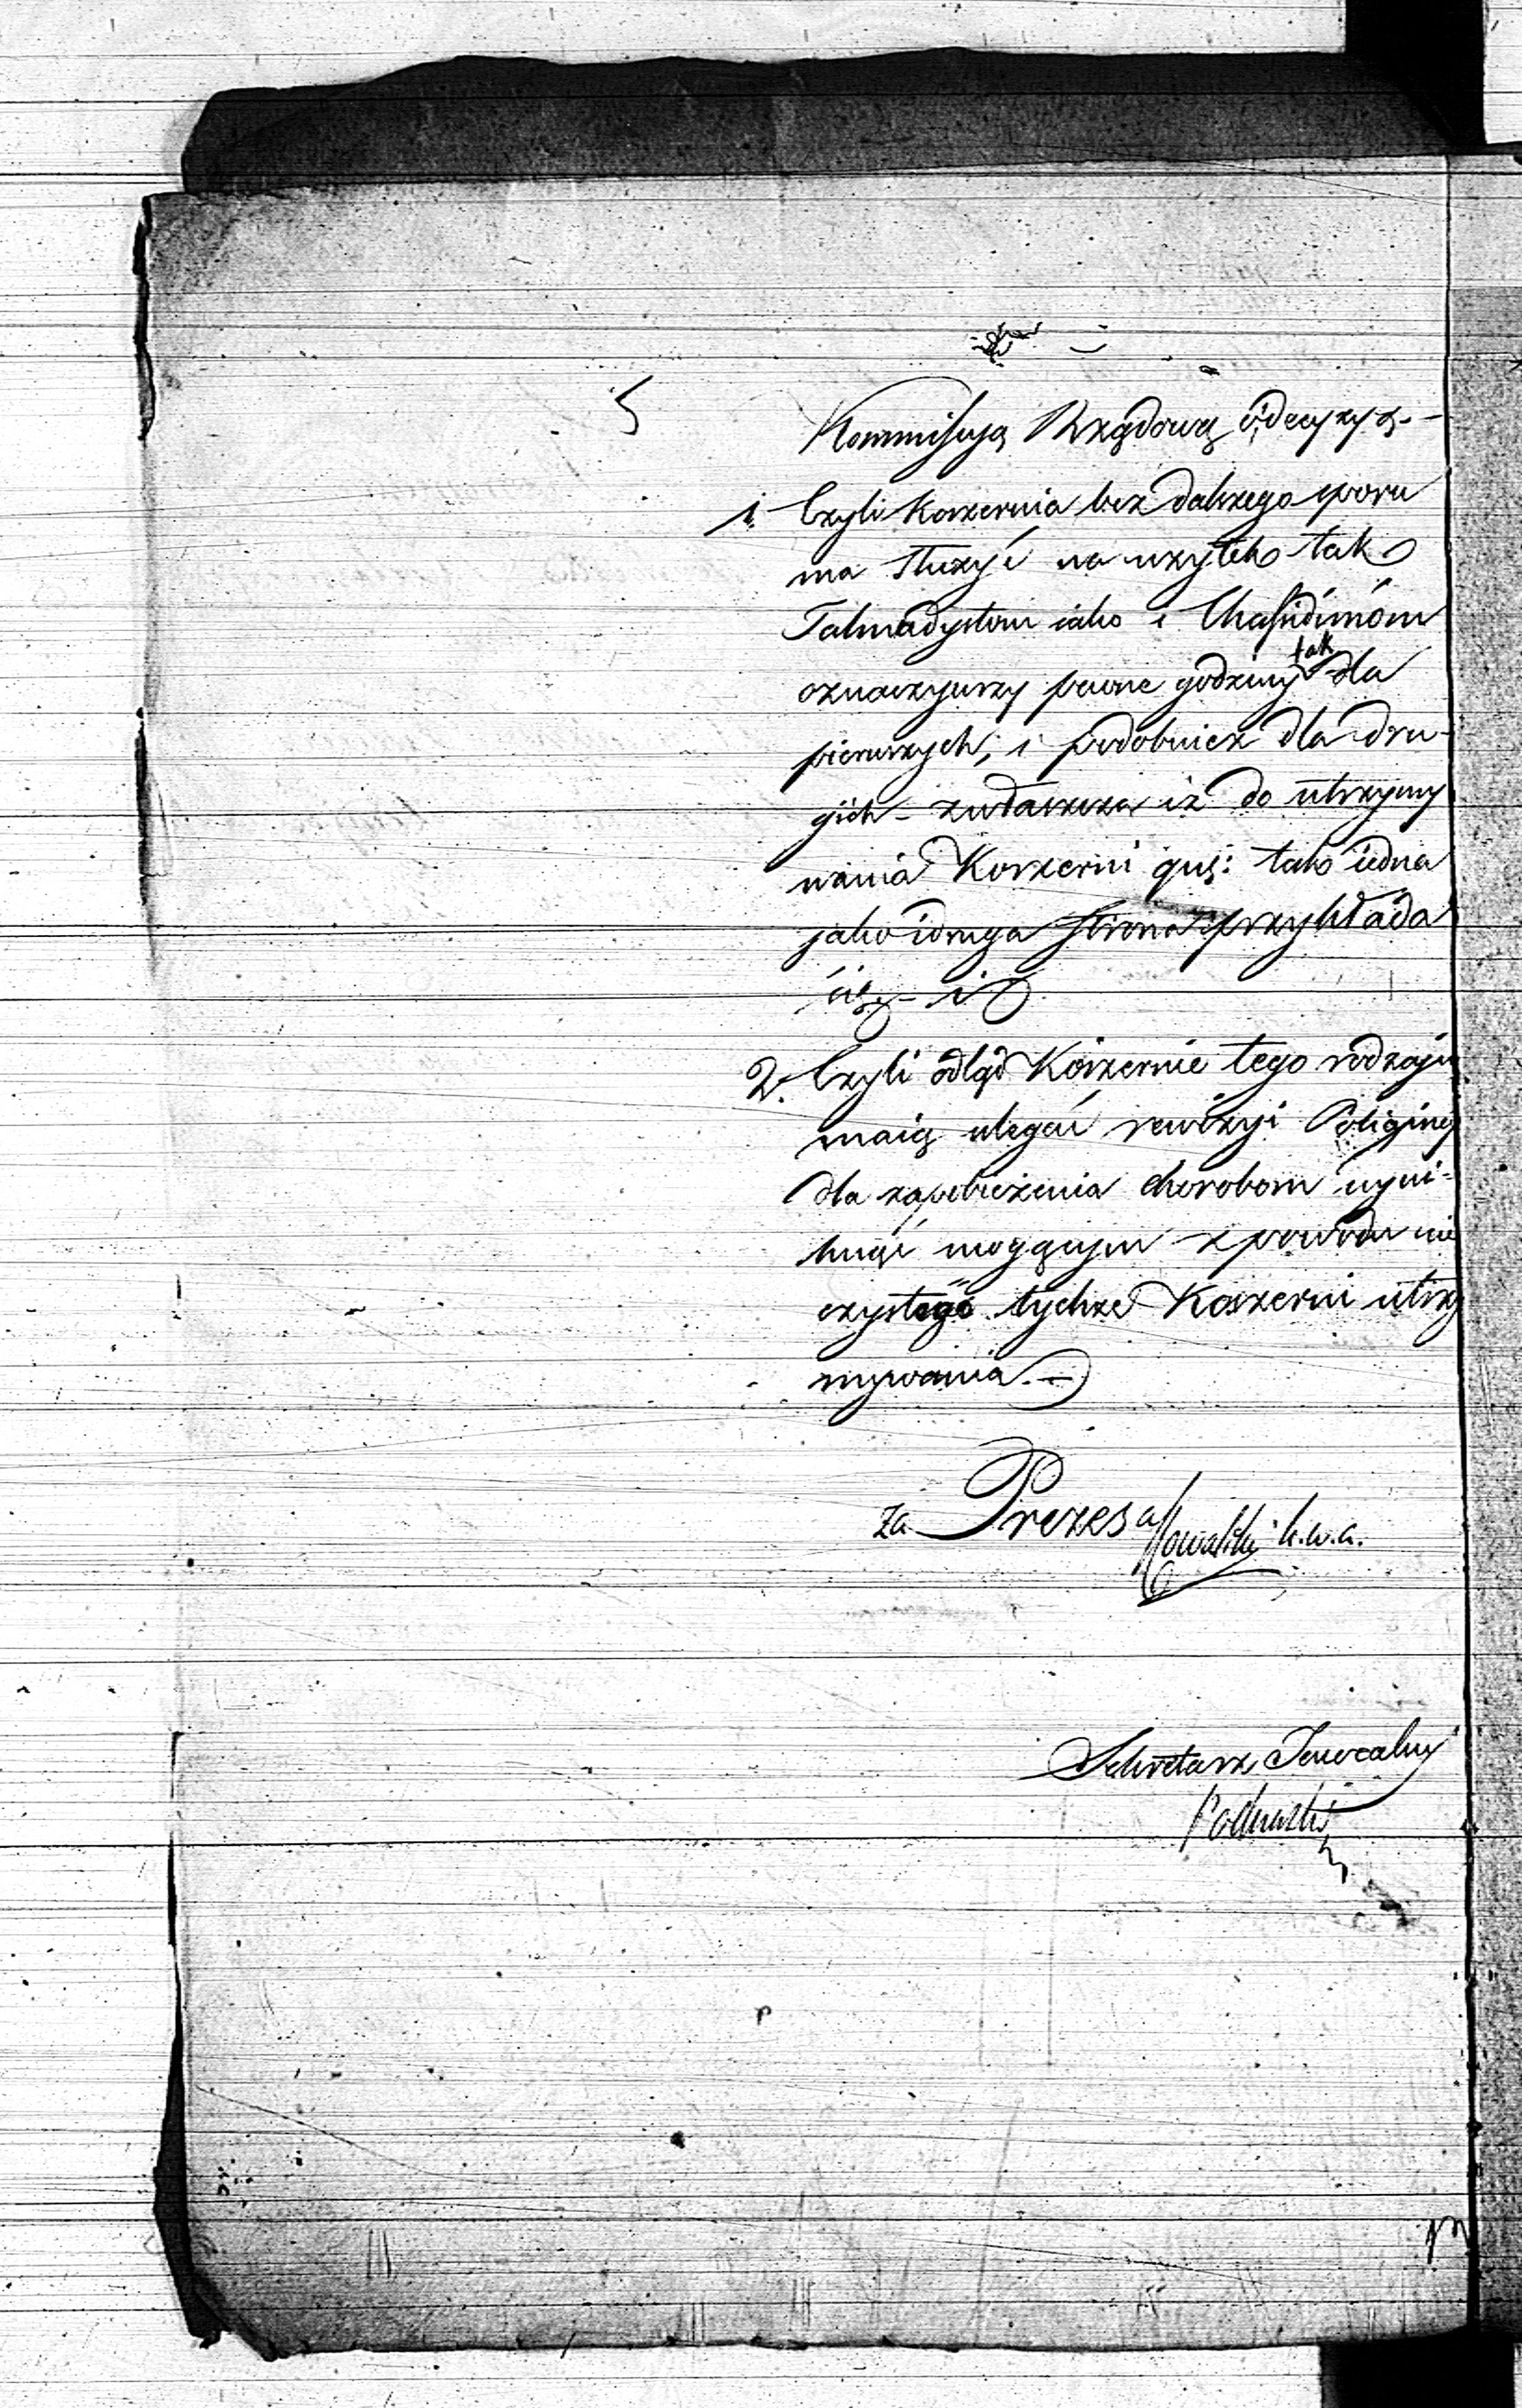 Kommissyą Rządową o decyzyą. —
1. Czyli Koszernia bez dalszego sporu
ma służyć na użytek tak
Talmudystom iako i Chassidimóm
oznaczywszy pewne godziny tak dla
pierwszych; i podobnież dla dru-
gich – zwłaszcza iż do utrzymy
wania Koszerni qus: tak iedna
jako i druga strona przykłada
się – i
2. Czyli odtąd Koszernie tego rodzaju
maią ulegać rewizyi Policyiney
dla zapobieżenia chorobom wyni-
knąć mogącym z powodu nie
czystego tychże Koszerni utrzy
mywania. —
za Prezesa Kowalski k.w.a.
Sekretarz Jeneralny